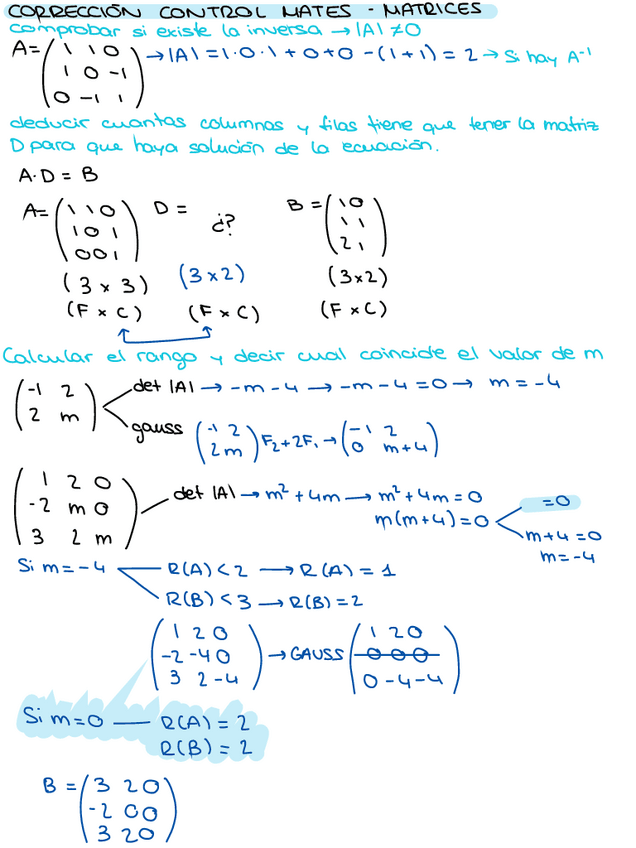 CORRECCIÓN CONTROL MATES - MATRICES
comprobar si existe la inversa → |A| ≠ 0
A = ( 1 1 0 → |A| = 1·0·1 + 0 + 0 - (1 + 1) = 2 → Si hay A⁻¹
1 0 -1
0 -1 1 )
deducir cuantas columnas y filas tiene que tener la matriz
D para que haya solución de la ecuación.
A·D = B
A = ( 1 1 0 D = ¿? B = ( 1 0
1 0 1 1 1
0 0 1 ) 2 1 )
(3 x 3) (3 x 2) (3x2)
(F x C) (F x C) (F x C)
Calcular el rango y decir cual coincide el valor de m
( -1 2 det |A| → -m - 4 → -m - 4 = 0 → m = -4
2 m )
gauss ( -1 2 F₂ + 2F₁ → ( -1 2
2 m ) 0 m+4 )
( 1 2 0 det |A| → m² + 4m → m² + 4m = 0 = 0
-2 m 0 m(m+4) = 0 m+4 = 0
3 2 m ) m = -4
Si m = -4 R(A) < 2 → R(A) = 1
R(B) < 3 → R(B) = 2
( 1 2 0 → GAUSS ( 1 2 0
-2 -4 0 0 0 0
3 2 -4 ) 0 -4 -4 )
Si m = 0 — R(A) = 2
R(B) = 2
B = ( 3 2 0
-2 0 0
3 2 0 )